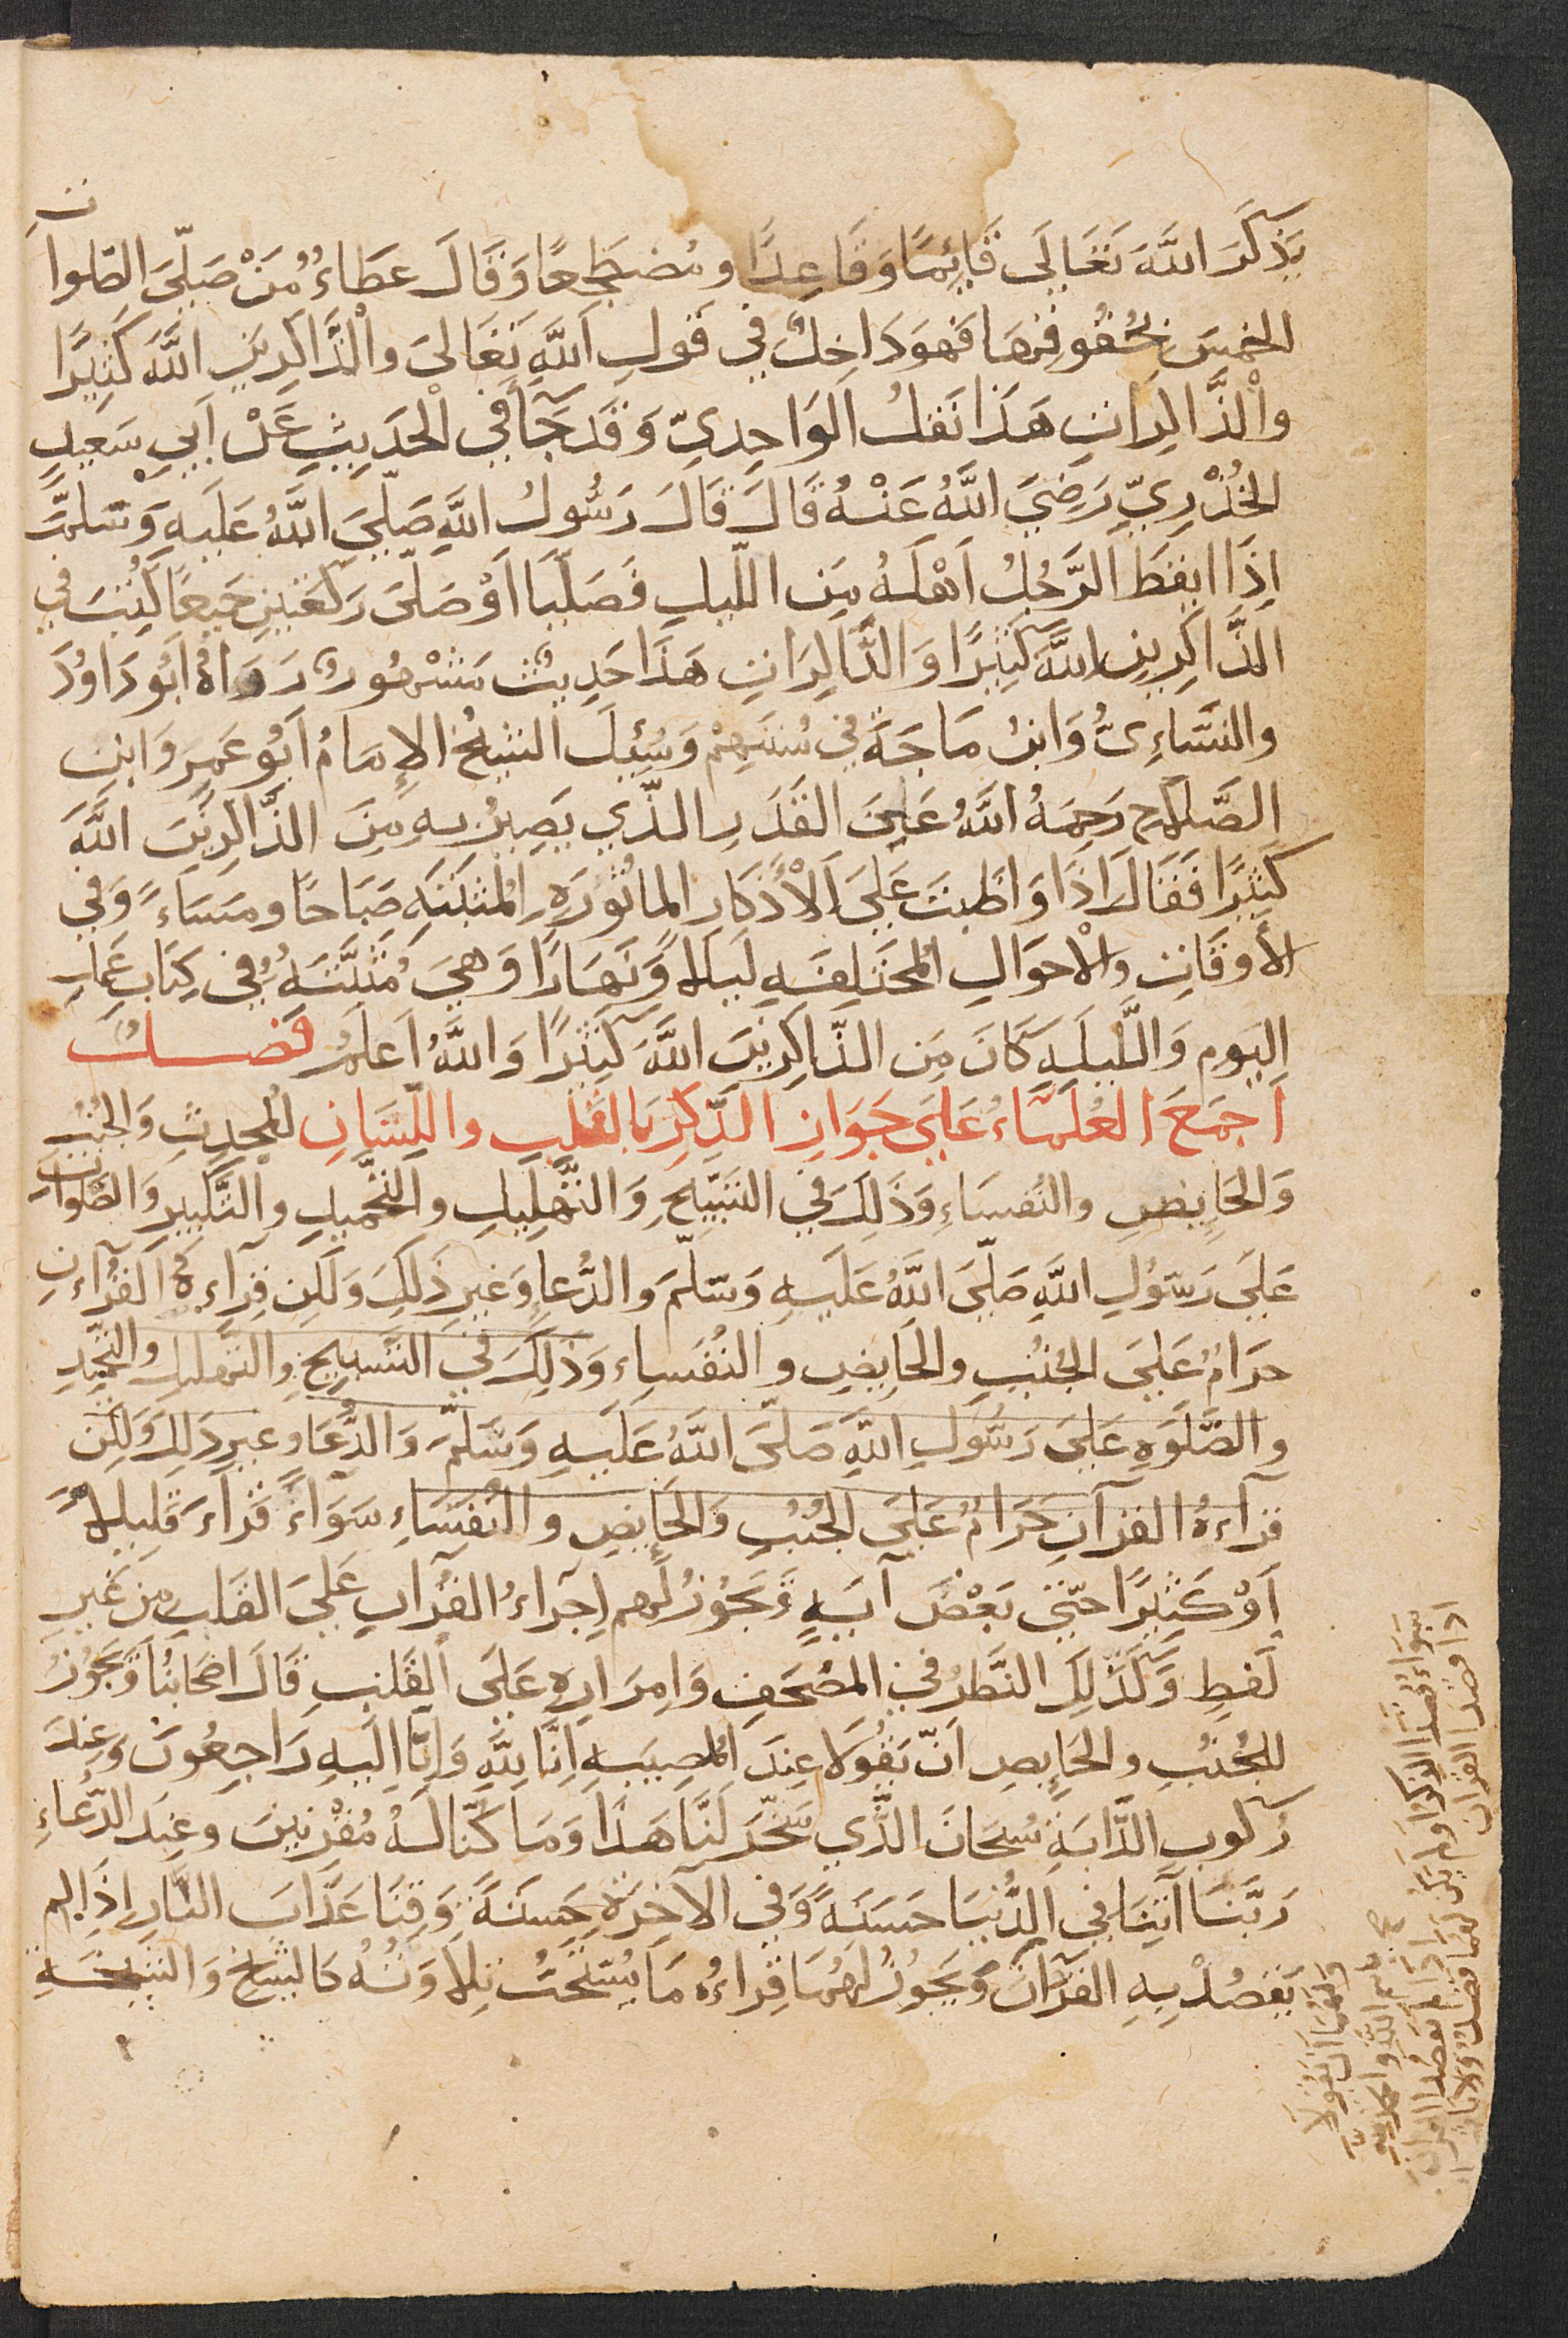 يَذْكُرَ اللَّهَ تَعَالَى قَائِمًا وَقَاعِدًا ومُضطَجِعًا وَقَالَ عَطَاءُ مَنْ صَلَّى الصَّلوات
الخمسَ بحُقُوقِهَا فَهوَ دَاخِلٌ في قَولِ اللَّهِ تَعَالىَ والْذَّاكِرِينَ اللَّهَ كَثِيرًا
والْذَّاكِرَاتِ هَذَا نَقلُ الوَاحِدِيّ وَقَدجَآ في الْحَدِيثِ عَنْ اَبيِ سَعِيدٍ
الخُدْرِيِّ رَضِيَ اللَّهُ عَنْهُ قَالَ قَالَ رَسُولُ اللَّهِ صَلّيَ اللَّهُ عَلَيهِ وَسَلّمَ
اِذَا ايقَظَ الرَّجُلُ اَهْلَهُ مِن اللّيلِ فَصَلّيَا اَوْ صَلّىَ رَكعَتَينِ جَميعًا كُتِبَ في
الذَّاكِرِينَ اللَّهَ كَثِيرًا وَالذَّاكِرَاتِ هَذَا حَدِيثٌ مَشْهُورٌ رَوَاهُ اَبُو دَاوُدَ
والنسَّاءِىُّ وَابنُ مَاجَةَ في سُنَنِهِمْ وَسُئِلَ الشيخُ الإِمَامُ اَبُو عَمرِ وَابنِ
الصَّلَاحِ رَحِمَهُ اللَّهُ عَلىَ القَدَرِ الذّي يَصِيرُ بهِ مِنَ الذّاكِرِينَ اللَّهَ
كَثِيرًا فَقَالَ اذَا وَاظَبتَ عَلَىَ الْأذكَارِ الماثُورَةِ المُثبَتَةِ صَبَاحًا ومَسَاءً وَفي
الأوقَاتِ والْاحوَالِ المُختَلِفَةِ لَيلًا وَّنَهَارًا وَهيَ مُثبَتَةُ في كِتَابِ عَمَلِ
اليَوم وَاللّيلَةِ كَانَ مِن الذّاكِرِينَ اللَّهَ كَثِيرًا وَاللَّهُ اَعلَمُ فصلٌ
اَجمَعَ العُلَمَاءُ عَلىَ جَوَازِ الذِّكرِ بَالقَلبِ واللِّسَانِ للمُحدِثِ وَالجُنُبِ
وَالحَايِضِ والنُفسَاءِ وَذَلِكَ في التسبيحِ وَالتَّهلِيلِ والتَّحمِيدِ والتَّكبِيرِ وَالصَّلوات
عَلىَ رَسُولِ اللَّهِ صَلّىَ اللَّهُ عَلَيهِ وَسَلّمَ والدُّعاءِ وَغَيرِ ذَلِكَ وَلَكِن قِرآءة القُرآنِ
حَرَامُ عَلىَ الجُنُبِ والحَايِضِ والنُفَسَاءِ وَذَلِكَ في التَسبِيحِ والتَهلِيلِ والتحميدِ
والصَّلَوةِ عَلىَ رَسُولِ اللّهِ صَلّىَ اللَّهُ عَلَيهِ وَسَلّمَ وَالدُّعَاءِ وغيرِ ذَلِكَ وَلَكِن
قرآءةُ القرآنِ حَرَامُ عَلىَ الجُنُبِ وَالحَايِضِ والنُفَسَاءِ سَوَاءً قَرَأَ قَلِيلاً
اَوْ كَثِيرًا حَتّى بَعْضَ آيَةٍ وَيَجُوزُ لَهم اِجرَاءُ القُرآنِ عَلىَ القَلبِ مِن غَيرِ
لَفظٍ وَكَذَلِكَ النَّظَرُ في المصْحَفِ وَاِمرَارِهِ عَلىَ القَلبِ قَالَ اصْحَابُنَا وَيَجُوزُ
للجُنُبِ والحَايِضِ انّ يَقُولَا عِندَ المُصِيبَةِ اِنَّا للَّهِ وَاِنَّا اِلَيهِ رَاجِعُونَ وَعِندَ
رُكوبِ الدَّابَّةِ سُبحَانَ الذّي سَخّرَ لَنَا هَذَا وَمَا كُنّا لَهُ مُقْرِنِينَ وَعِندَ الدُّعَاءِ
رَبّنَا آتِنَا في الدُّنيَا حَسَنَةً وَفي الآخِرَةِ حَسَنَةً وَقِنَا عَذَابَ النَّارِ إذَا لم
يَقصُدْ بِهِ القُرآنَ وَيَجُوزُ لهُمَا قِراءةُ مَا نُسِخَتْ تِلَاوَتُهُ كَالشيخُ وَالشيخَةِ
ولهُمَا اَنْ يَقُولَا
بسم اللَّهِ والحمد للَّهِ
اذَا لم يَقصُدا القرآنَ
سَواءٌ قصَدا الذكرَ اولم يَكن لهُمَا قصدٌ ولا ياثما
اذا قصدا القران